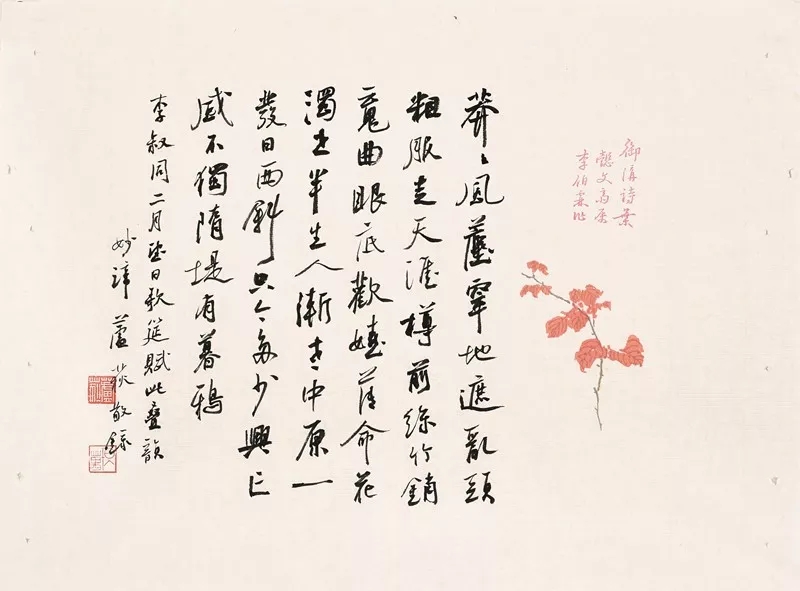 御溝詩葉
李伯霖作
莽〻風塵窣地遮亂頭
粗服走天涯樽前絲竹銷
魂曲眼底歡娛薄命花
濁世半生人漸老中原一
發日西斜只今多少興亡
感不獨隋堤有暮鴉
李叔同二月望日歌筵賦此疊韻
妙諦蘆荻敬錄